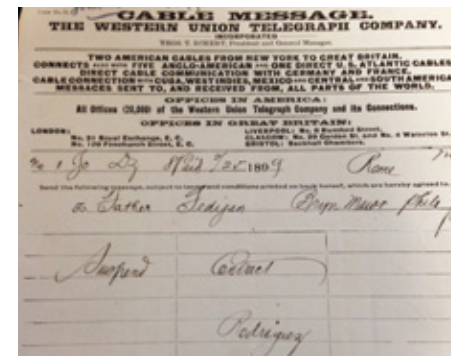 CABLE MESSAGE.
THE WESTERN UNION TELEGRAPH COMPANY.
INCORPORATED
THOS. T. ECKERT, President and General Manager.
TWO AMERICAN CABLES FROM NEW YORK TO GREAT BRITAIN.
CONNECTS ALSO WITH FIVE ANGLO-AMERICAN AND ONE DIRECT U.S. ATLANTIC CABLES.
DIRECT CABLE COMMUNICATION WITH GERMANY AND FRANCE.
CABLE CONNECTION WITH CUBA, WEST INDIES, MEXICO AND CENTRAL AND SOUTH AMERICA.
MESSAGES SENT TO, AND RECEIVED FROM, ALL PARTS OF THE WORLD.
OFFICES IN AMERICA:
All Offices (20,000) of the Western Union Telegraph Company and its Connections.
OFFICES IN GREAT BRITAIN:
LONDON: LIVERPOOL: No. 8 Rumford Street,
No. 21 Royal Exchange, E. C. GLASGOW: No. 29 Gordon St. and No. 4 Waterloo St.
No. 109 Fenchurch Street, E. C. BRISTOL: Backhall Chambers.
Paid 1899 Rome
Send the following message, subject to terms and conditions printed on back hereof, which are hereby agreed to.
to Father Fedigan Bryn Mawr Phila
Suspend Contract
Rodriguez